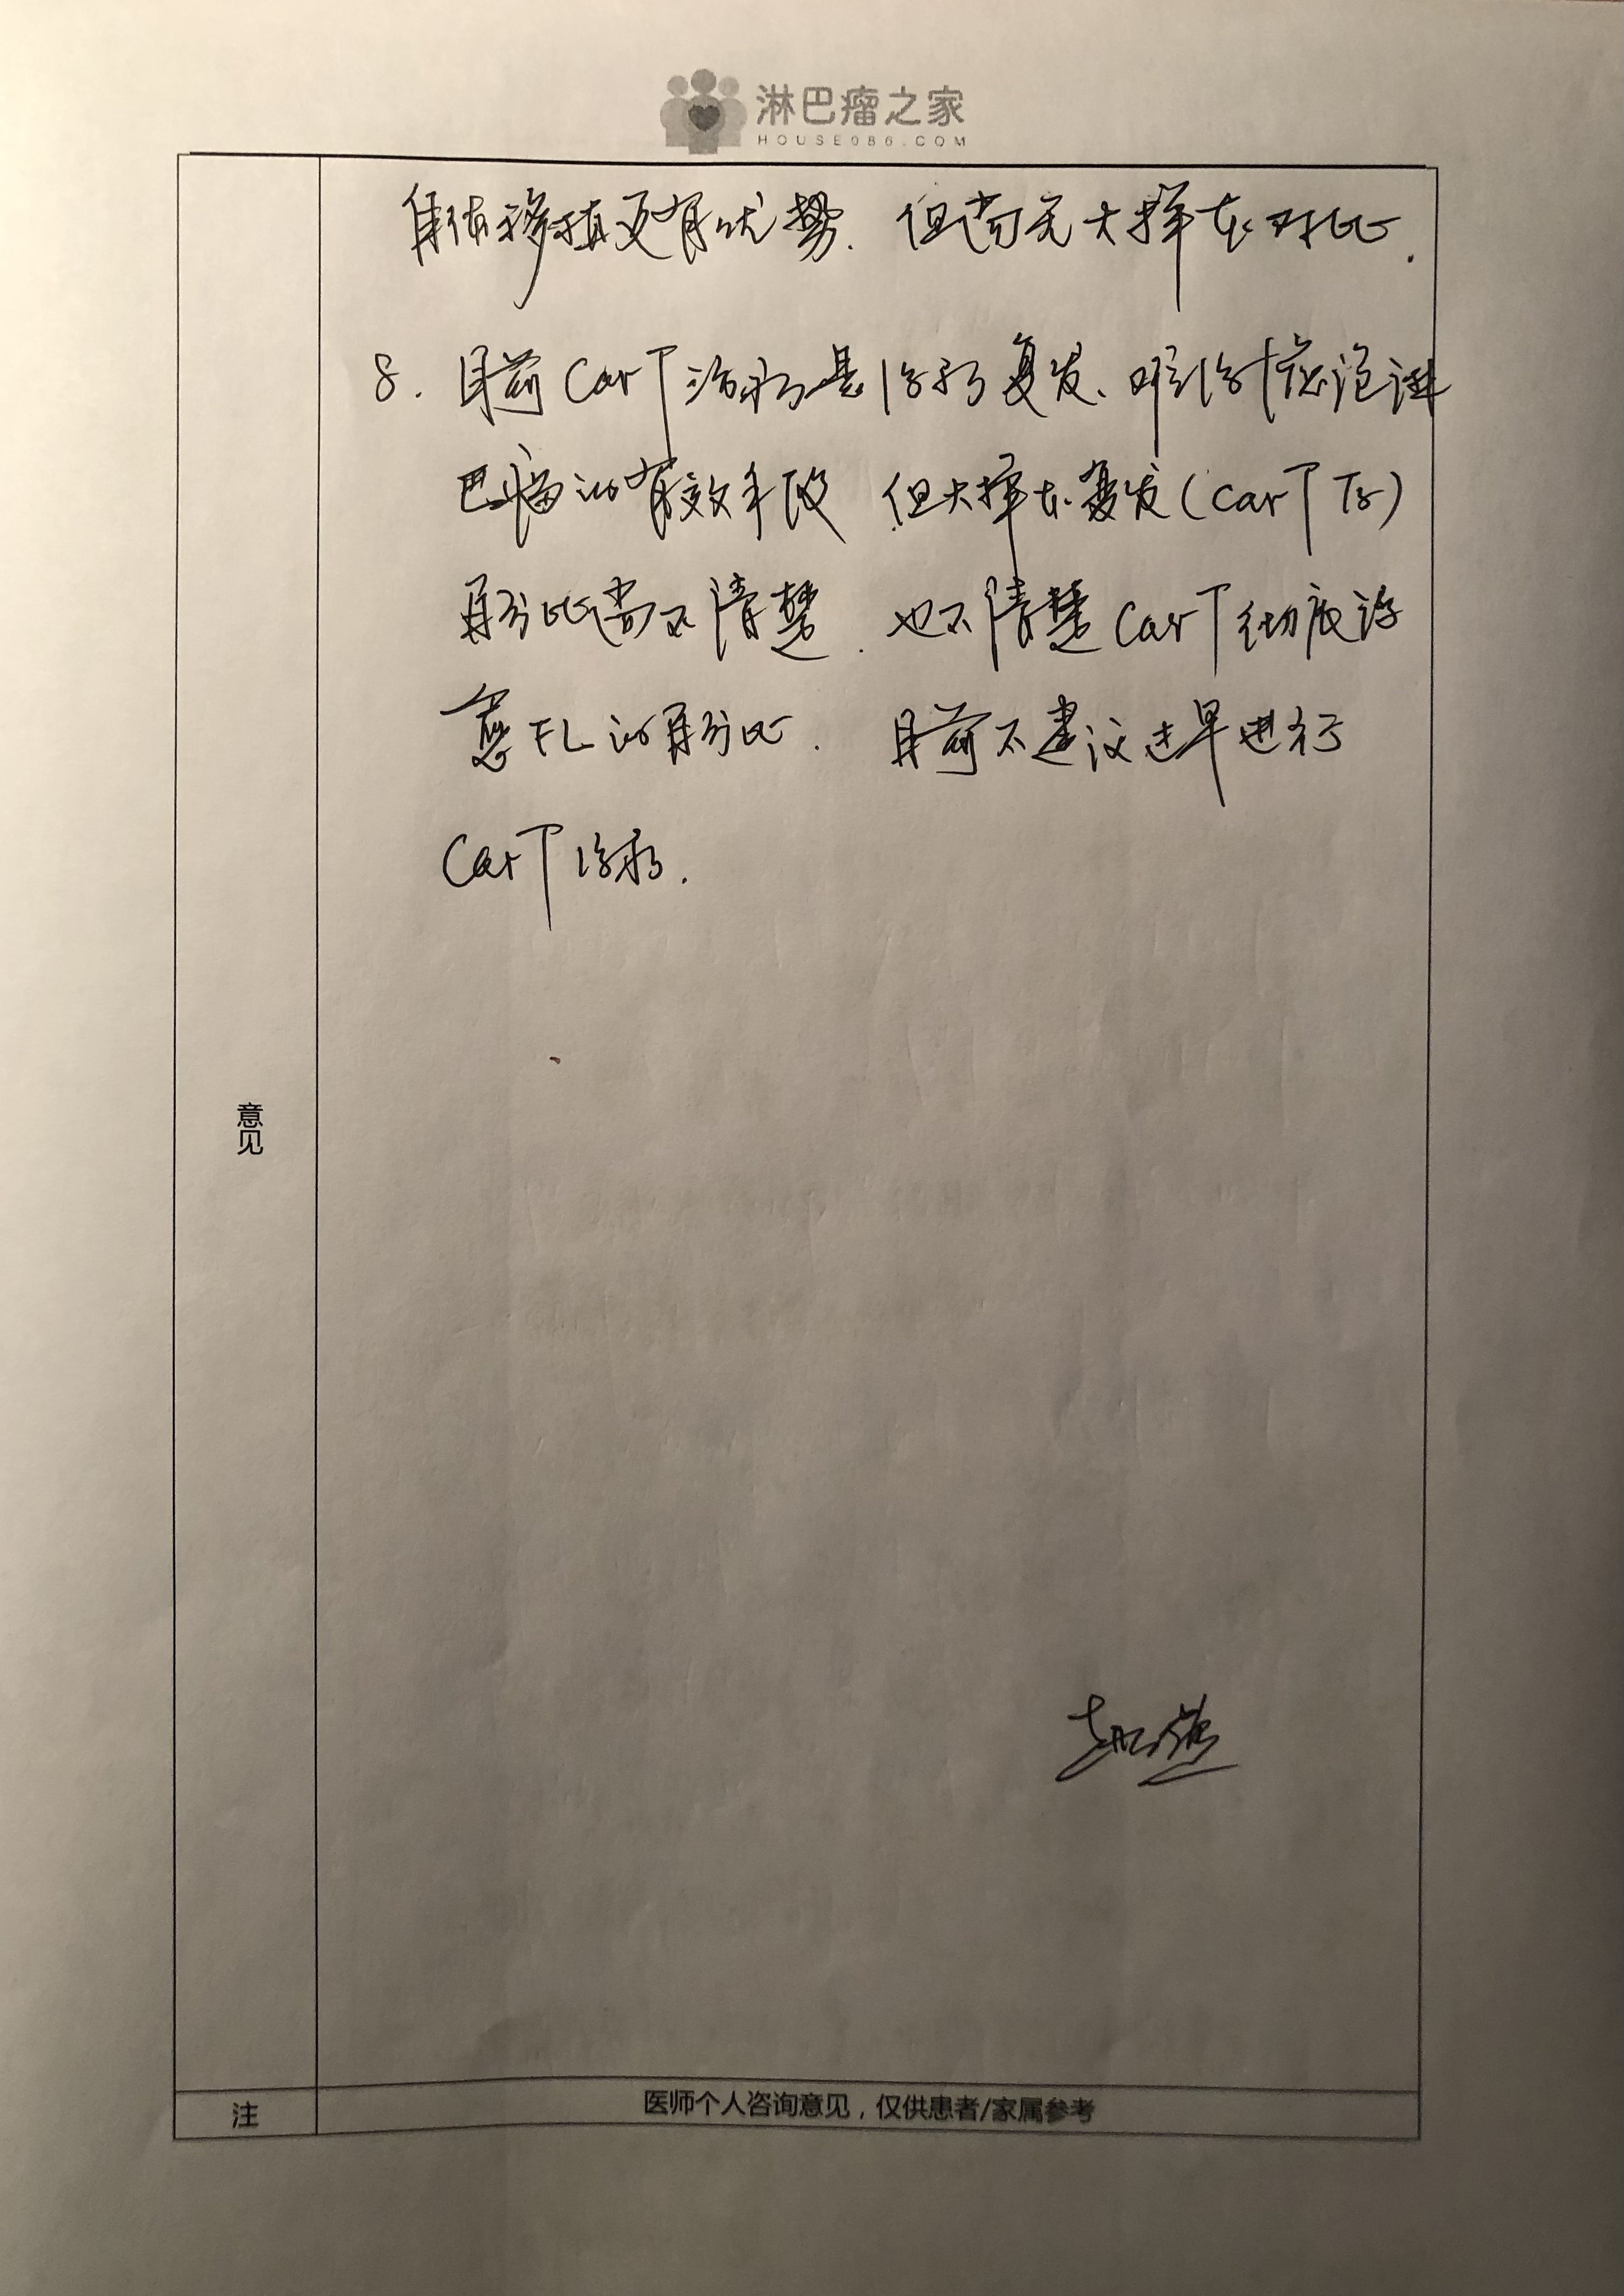 淋巴瘤之家
HOUSE086.COM
自体移植更有优势. 但尚无大样本对比.
8. 目前 CarT 治疗是治疗复发、难治性滤泡淋
巴瘤的有效手段 但大样本复发(CarT后)
百分比尚不清楚. 也不清楚 CarT 彻底治
愈FL的百分比. 目前不建议过早进行
CarT 治疗.
意见
注
医师个人咨询意见，仅供患者/家属参考